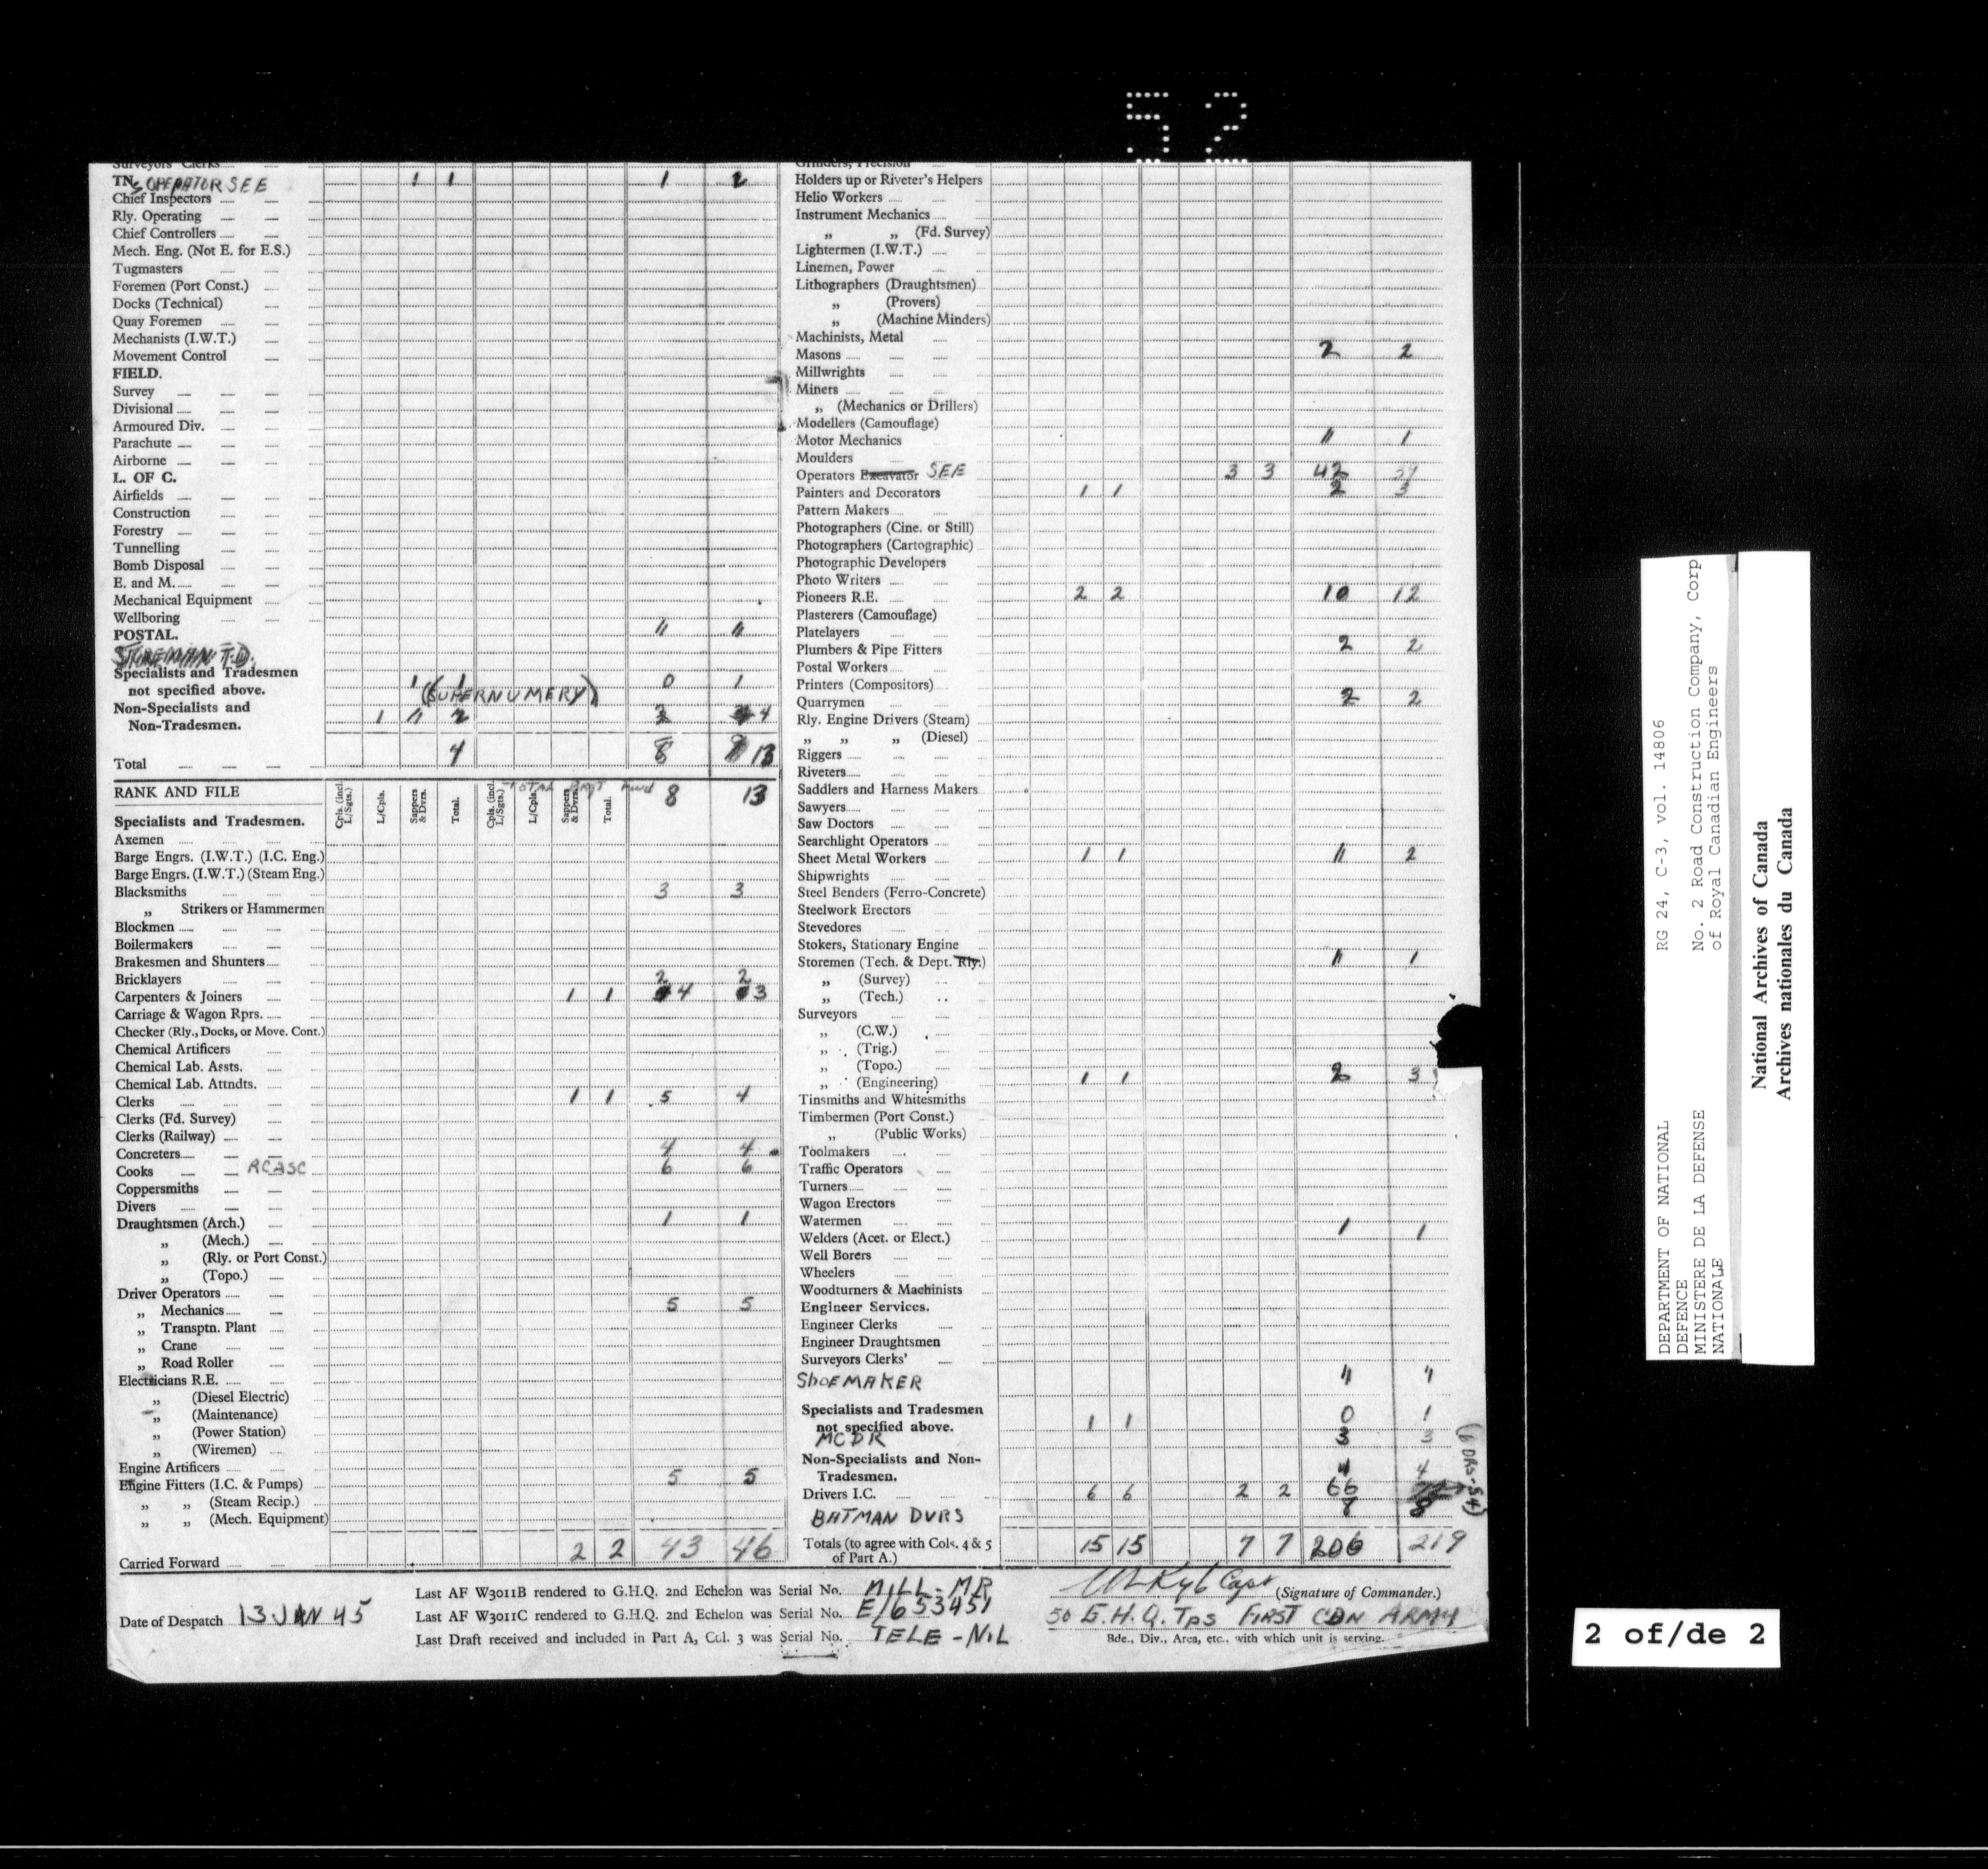 52
Surveyors' Clerks
TN. OPERATOR SEE 1 1 1 2
Chief Inspectors
Rly. Operating
Chief Controllers
Mech. Eng. (Not E. for E.S.)
Tugmasters
Foremen (Port Const.)
Docks (Technical)
Quay Foremen
Mechanists (I.W.T.)
Movement Control
FIELD.
Survey
Divisional
Armoured Div.
Parachute
Airborne
L. OF C.
Airfields
Construction
Forestry
Tunnelling
Bomb Disposal
E. and M.
Mechanical Equipment
Wellboring
POSTAL. 11 11
STOREMAN T.D.
Specialists and Tradesmen
not specified above. 1 1 0 1
(SUPERNUMERY)
Non-Specialists and
Non-Tradesmen. 1 11 2 4
Total 4 8 13
RANK AND FILE
Cpls. (incl. L/Sgts.) L/Cpls. Sappers & Dvrs. Total. Cpls. (incl. L/Sgts.) L/Cpls. Sappers & Dvrs. Total.
TOTAL Fwd 8 13
Specialists and Tradesmen.
Axemen
Barge Engrs. (I.W.T.) (I.C. Eng.)
Barge Engrs. (I.W.T.) (Steam Eng.)
Blacksmiths 3 3
„ Strikers or Hammermen
Blockmen
Boilermakers
Brakesmen and Shunters
Bricklayers 2 2
Carpenters & Joiners 1 1 4 3
Carriage & Wagon Rprs.
Checker (Rly., Docks, or Move. Cont.)
Chemical Artificers
Chemical Lab. Assts.
Chemical Lab. Attndts.
Clerks 1 1 5 4
Clerks (Fd. Survey)
Clerks (Railway)
Concreters 4 4
Cooks RCASC 6 6
Coppersmiths
Divers
Draughtsmen (Arch.) 1 1
„ (Mech.)
„ (Rly. or Port Const.)
„ (Topo.)
Driver Operators
„ Mechanics 5 5
„ Transptn. Plant
„ Crane
„ Road Roller
Electricians R.E.
„ (Diesel Electric)
„ (Maintenance)
„ (Power Station)
„ (Wiremen)
Engine Artificers
Engine Fitters (I.C. & Pumps) 5 5
„ „ (Steam Recip.)
„ „ (Mech. Equipment)
Carried Forward 2 2 43 46
Grinders, Precision
Holders up or Riveter's Helpers
Helio Workers
Instrument Mechanics
„ „ (Fd. Survey)
Lightermen (I.W.T.)
Linemen, Power
Lithographers (Draughtsmen)
„ (Provers)
„ (Machine Minders)
Machinists, Metal
Masons 2 2
Millwrights
Miners
„ (Mechanics or Drillers)
Modellers (Camouflage)
Motor Mechanics 11 1
Moulders
Operators Excavator SEE 3 3 42
Painters and Decorators 1 1 2 3
Pattern Makers
Photographers (Cine. or Still)
Photographers (Cartographic)
Photographic Developers
Photo Writers
Pioneers R.E. 2 2 10 12
Plasterers (Camouflage)
Platelayers
Plumbers & Pipe Fitters 2 2
Postal Workers
Printers (Compositors)
Quarrymen 2 2
Rly. Engine Drivers (Steam)
„ „ „ (Diesel)
Riggers
Riveters
Saddlers and Harness Makers
Sawyers
Saw Doctors
Searchlight Operators
Sheet Metal Workers 1 1 11 2
Shipwrights
Steel Benders (Ferro-Concrete)
Steelwork Erectors
Stevedores
Stokers, Stationary Engine
Storemen (Tech. & Dept. Rly.) 11 1
„ (Survey)
„ (Tech.)
Surveyors
„ (C.W.)
„ (Trig.)
„ (Topo.)
„ (Engineering) 1 1 2 3
Tinsmiths and Whitesmiths
Timbermen (Port Const.)
„ (Public Works)
Toolmakers
Traffic Operators
Turners
Wagon Erectors
Watermen
Welders (Acet. or Elect.) 1 1
Well Borers
Wheelers
Woodturners & Machinists
Engineer Services.
Engineer Clerks
Engineer Draughtsmen
Surveyors Clerks'
SHOEMAKER 11 11
Specialists and Tradesmen
not specified above. 1 1 0 1
MCDR 3 3
Non-Specialists and Non-
Tradesmen. 4 4
Drivers I.C. 6 6 2 2 66
BATMAN DVRS 8
Totals (to agree with Cols. 4 & 5
of Part A.) 15 15 7 7 206 219
Date of Despatch 13 JAN 45
Last AF W3011B rendered to G.H.Q. 2nd Echelon was Serial No. NILL-MR
Last AF W3011C rendered to G.H.Q. 2nd Echelon was Serial No. E/653451
Last Draft received and included in Part A, Col. 3 was Serial No. TELE-NIL
Capt (Signature of Commander.)
50 G.H.Q. Tps FIRST CDN ARMY
Bde., Div., Area, etc., with which unit is serving.
DEPARTMENT OF NATIONAL DEFENCE
MINISTERE DE LA DEFENSE NATIONALE
RG 24, C-3, vol. 14806
No. 2 Road Construction Company, Corp
of Royal Canadian Engineers
National Archives of Canada
Archives nationales du Canada
2 of/de 2